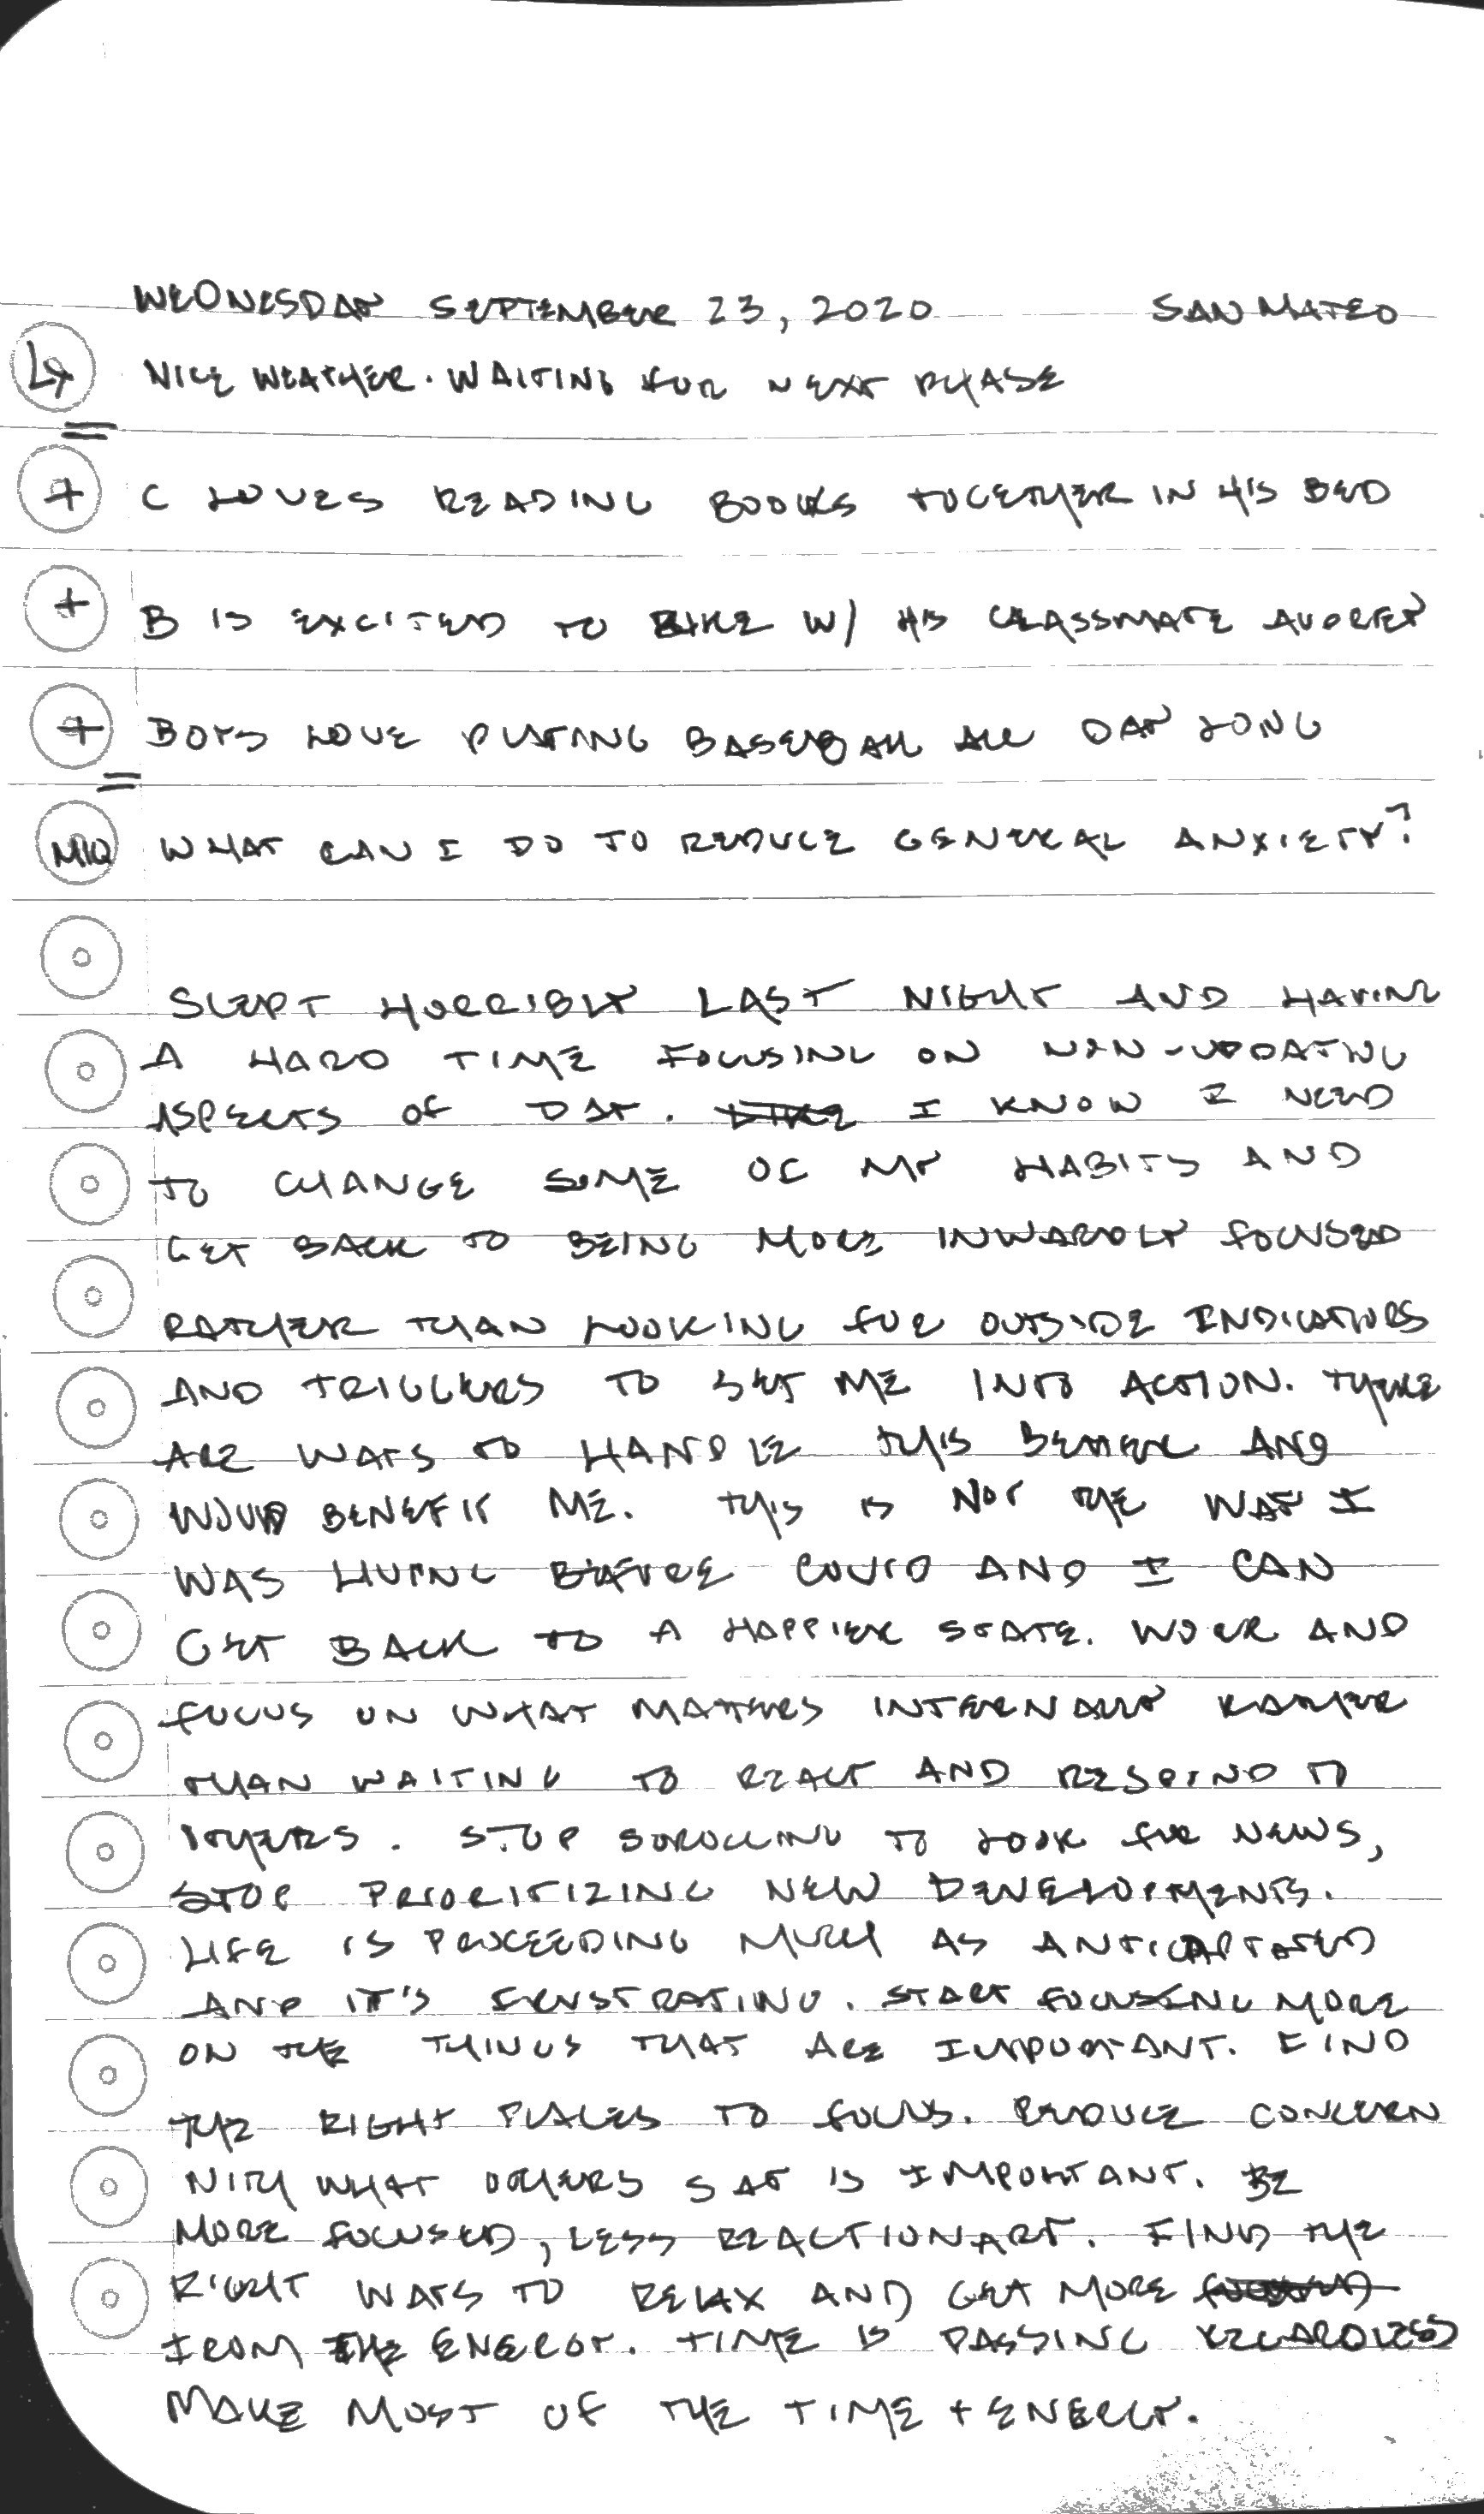 WEDNESDAY SEPTEMBER 23, 2020 SAN MATEO
NICE WEATHER. WAITING FOR NEXT PHASE
+ C LOVES READING BOOKS TOGETHER IN HIS BED
+ B IS EXCITED TO BIKE W/ HIS CLASSMATE AUDREY
+ BOYS LOVE PLAYING BASEBALL ALL DAY LONG
MIQ WHAT CAN I DO TO REDUCE GENERAL ANXIETY?
SLEPT HORRIBLY LAST NIGHT AND HAVING
A HARD TIME FOCUSING ON NON-UPDATING
ASPECTS OF DAY. I KNOW I NEED
TO CHANGE SOME OF MY HABITS AND
GET BACK TO BEING MORE INWARDLY FOCUSED
RATHER THAN LOOKING FOR OUTSIDE INDICATORS
AND TRIGGERS TO SET ME INTO ACTION. THERE
ARE WAYS TO HANDLE THIS BETTER AND
WOULD BENEFIT ME. THIS IS NOT THE WAY I
WAS LIVING BEFORE COVID AND I CAN
GET BACK TO A HAPPIER STATE. WORK AND
FOCUS ON WHAT MATTERS INTERNALLY RATHER
THAN WAITING TO REACT AND RESPOND TO
OTHERS. STOP SCROLLING TO LOOK FOR NEWS,
STOP PRIORITIZING NEW DEVELOPMENTS.
LIFE IS PROCEEDING MUCH AS ANTICIPATED
AND IT'S FRUSTRATING. START FOCUSING MORE
ON THE THINGS THAT ARE IMPORTANT. FIND
THE RIGHT PLACES TO FOCUS. REDUCE CONCERN
WITH WHAT OTHERS SAY IS IMPORTANT. BE
MORE FOCUSED, LESS REACTIONARY. FIND THE
RIGHT WAYS TO RELAX AND GET MORE
FROM THE ENERGY. TIME IS PASSING REGARDLESS
MAKE MOST OF THE TIME + ENERGY.